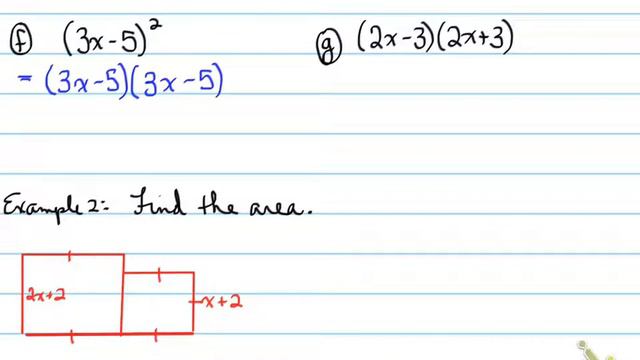 f (3x-5)²
= (3x-5)(3x-5)
g (2x-3)(2x+3)
Example 2:- Find the area.
2x+2
x+2